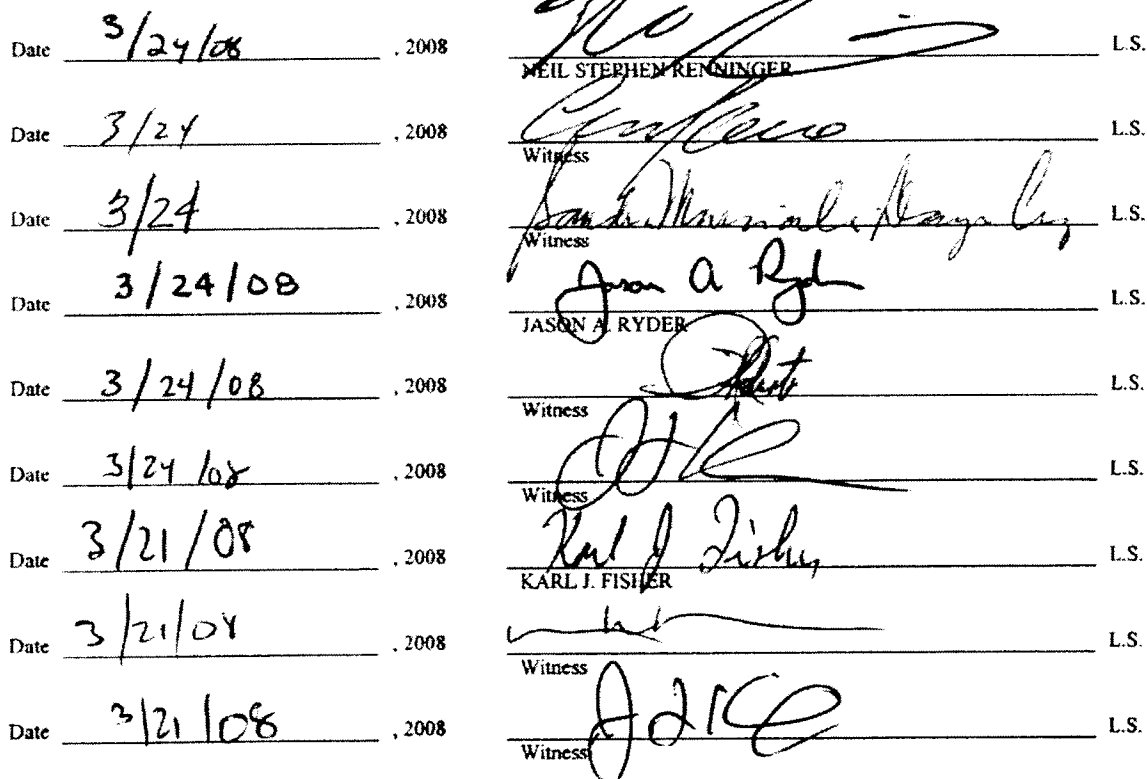 Date 3/24/08 , 2008 L.S.
NEIL STEPHEN RENNINGER
Date 3/24 , 2008 L.S.
Witness
Date 3/24 , 2008 L.S.
Witness
Date 3/24/08 , 2008 Jason A Ryder L.S.
JASON A. RYDER
Date 3/24/08 , 2008 L.S.
Witness
Date 3/24/08 , 2008 L.S.
Witness
Date 3/21/08 , 2008 Karl J Fisher L.S.
KARL J. FISHER
Date 3/21/08 , 2008 L.S.
Witness
Date 3/21/08 , 2008 L.S.
Witness